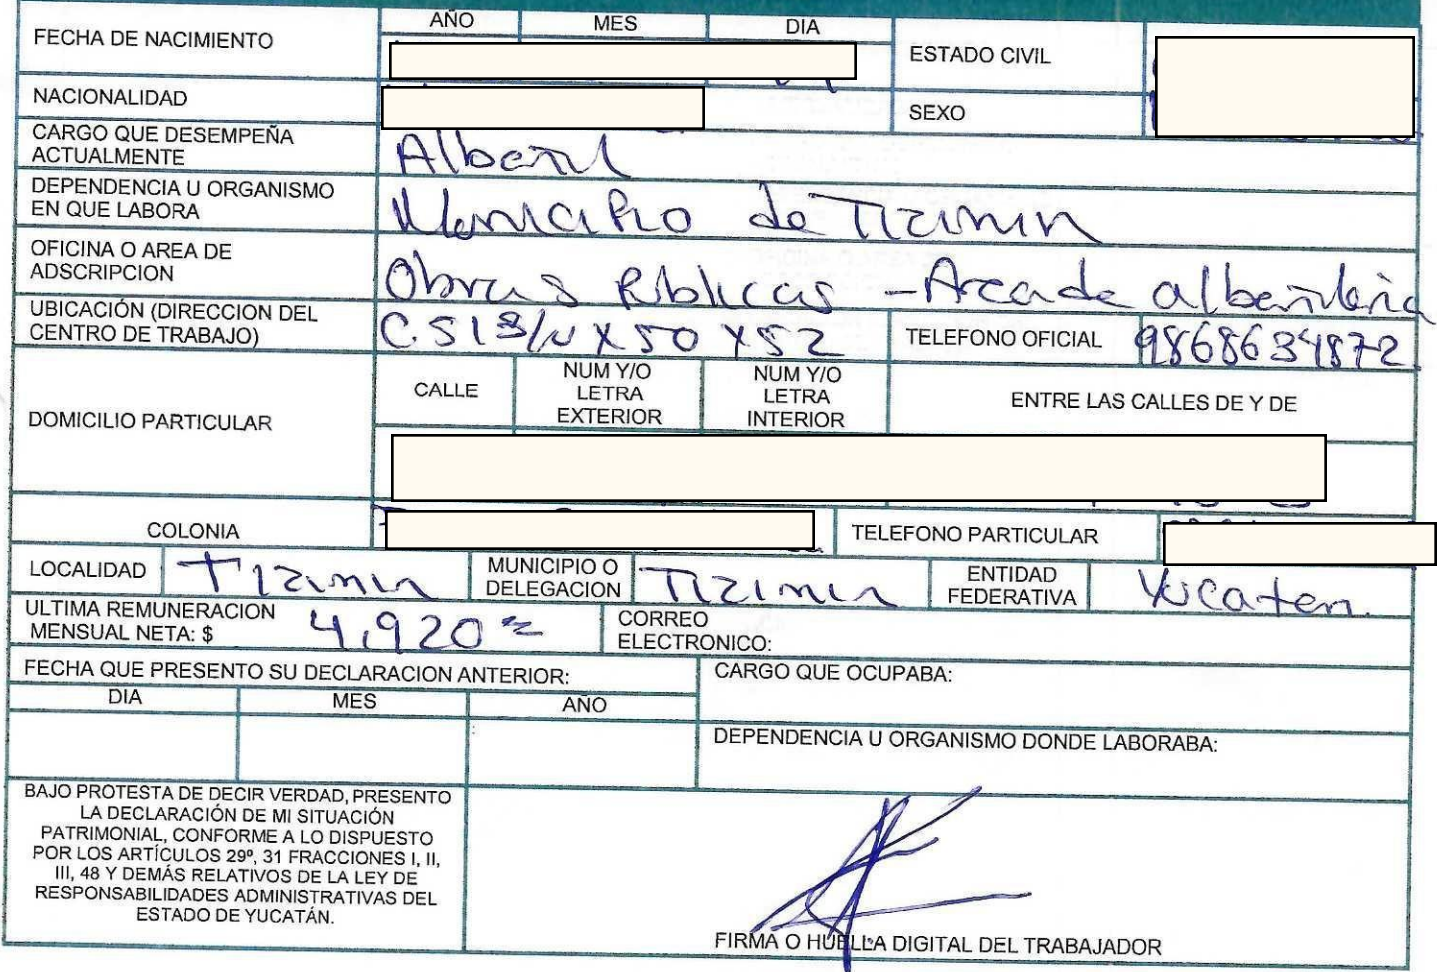 AÑO MES DIA
FECHA DE NACIMIENTO
ESTADO CIVIL
NACIONALIDAD
SEXO
CARGO QUE DESEMPEÑA
ACTUALMENTE
Albañil
DEPENDENCIA U ORGANISMO
EN QUE LABORA
Municipio de Tizimin
OFICINA O AREA DE
ADSCRIPCION
Obras Publicas - Area de albañileria
UBICACIÓN (DIRECCION DEL
CENTRO DE TRABAJO)
C. 51 S/N X 50 Y 52
TELEFONO OFICIAL 9868634872
DOMICILIO PARTICULAR
CALLE
NUM Y/O
LETRA
EXTERIOR
NUM Y/O
LETRA
INTERIOR
ENTRE LAS CALLES DE Y DE
COLONIA
TELEFONO PARTICULAR
LOCALIDAD Tizimin
MUNICIPIO O
DELEGACION
Tizimin
ENTIDAD
FEDERATIVA
Yucatan.
ULTIMA REMUNERACION
MENSUAL NETA: $
4,920
CORREO
ELECTRONICO:
FECHA QUE PRESENTO SU DECLARACION ANTERIOR:
DIA MES AÑO
CARGO QUE OCUPABA:
DEPENDENCIA U ORGANISMO DONDE LABORABA:
BAJO PROTESTA DE DECIR VERDAD, PRESENTO
LA DECLARACIÓN DE MI SITUACIÓN
PATRIMONIAL, CONFORME A LO DISPUESTO
POR LOS ARTÍCULOS 29º, 31 FRACCIONES I, II,
III, 48 Y DEMÁS RELATIVOS DE LA LEY DE
RESPONSABILIDADES ADMINISTRATIVAS DEL
ESTADO DE YUCATÁN.
FIRMA O HUELLA DIGITAL DEL TRABAJADOR